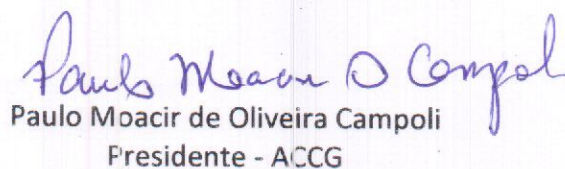 Paulo Moacir O Campoli
Paulo Moacir de Oliveira Campoli
Presidente - ACCG